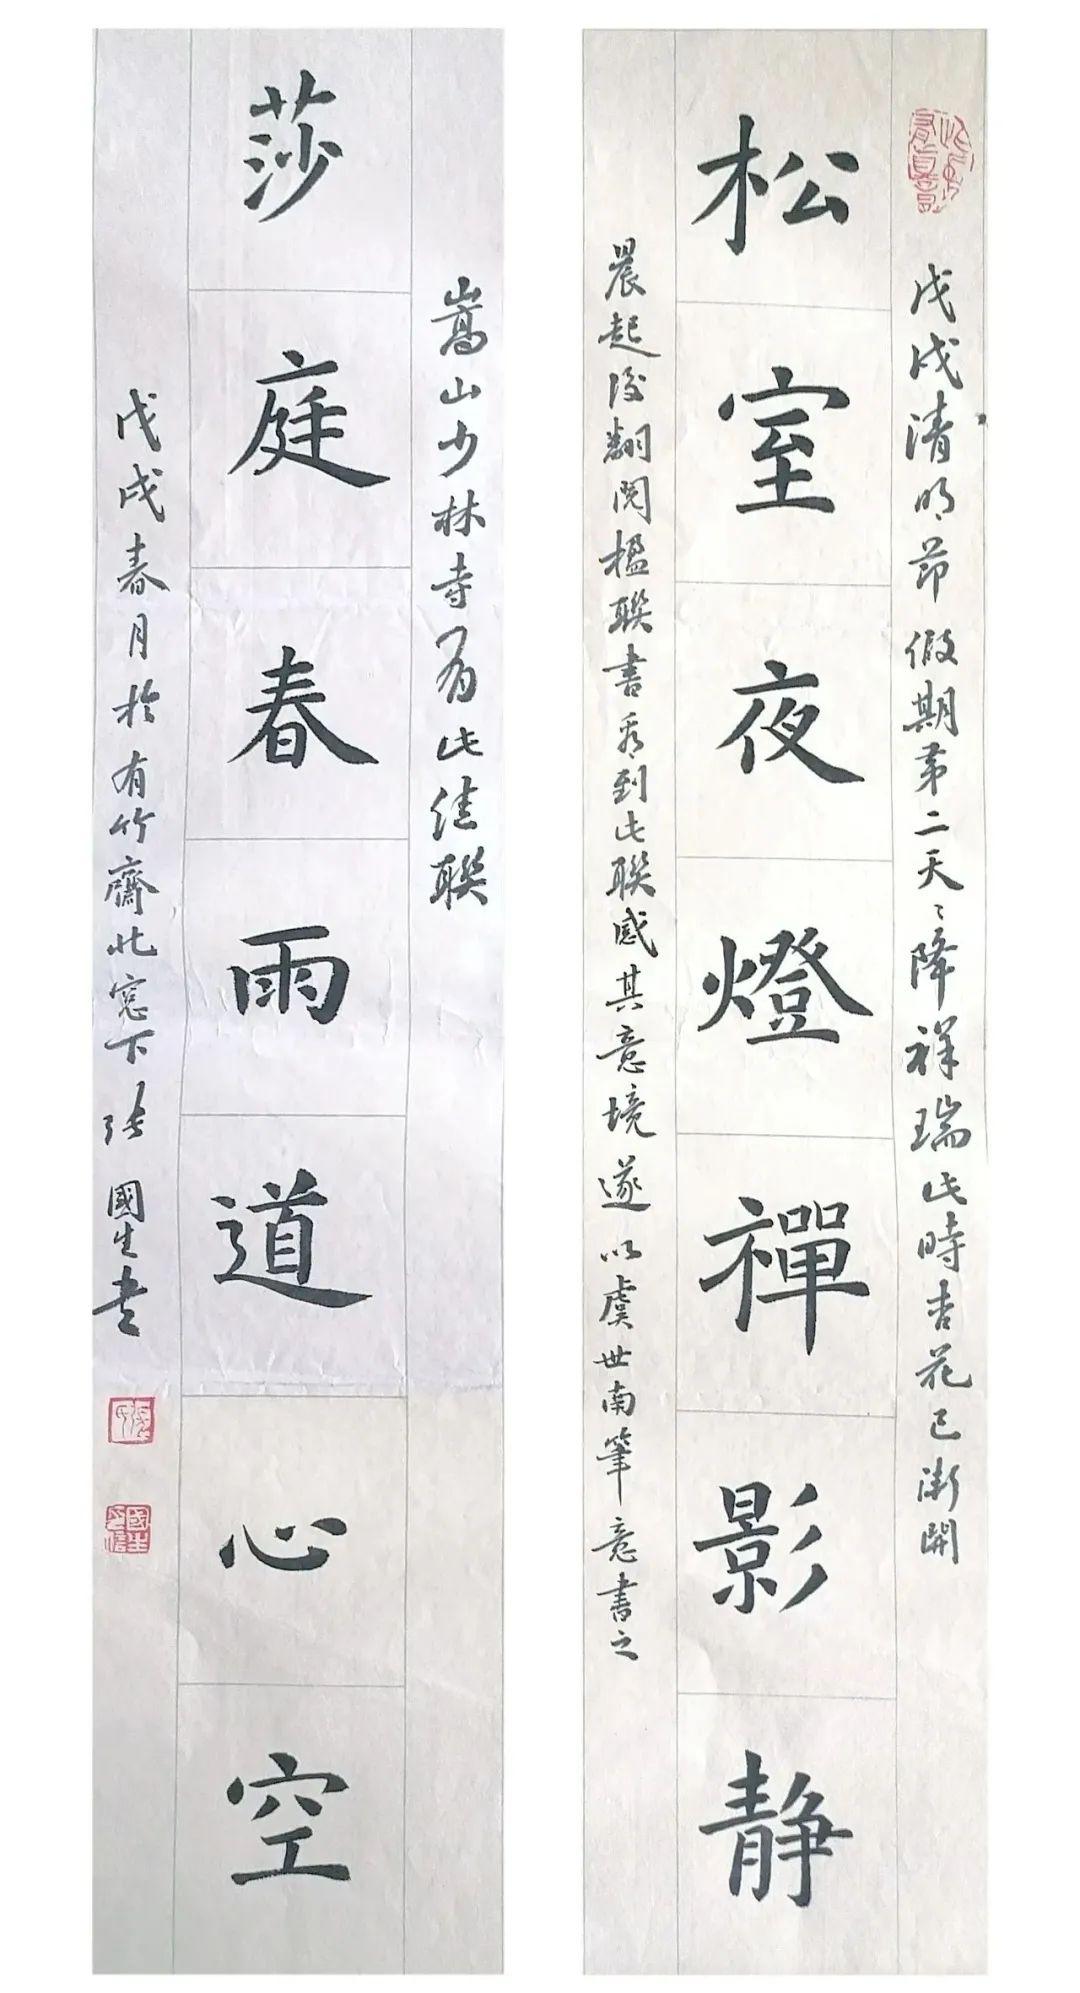 戊戌清明节假期第二天々降祥瑞此時杏花已漸開
松室夜燈禪影静
晨起後翻閲楹聯書看到此聯感其意境遂以虞世南筆意書之
嵩山少林寺有此佳聯
莎庭春雨道心空
戊戌春月於有竹齋北窓下張國生書